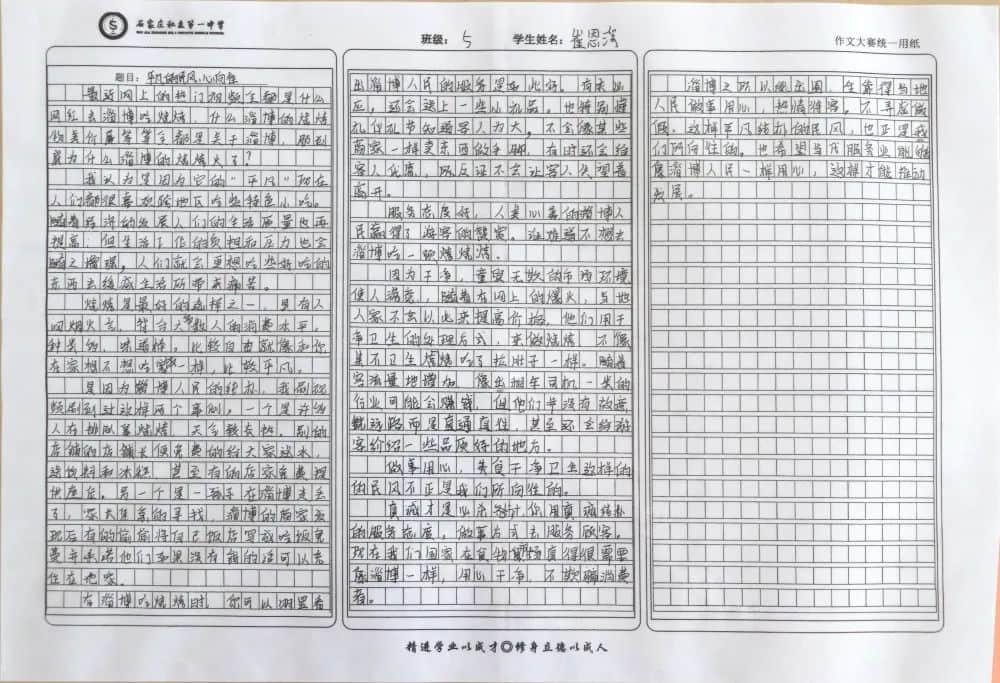 石家庄私立第一中学
班级： 5 学生姓名：崔恩
作文大赛统一用纸
题目：平凡的民风，心向往
最近网上的热门视频全都是什么
网红去淄博吃烧烤，什么淄博的烧烤
物美价廉等等全都是关于淄博，刷到
竟为什么淄博的烧烤火了？
我认为是因为它的“平凡”现在
人们都很喜欢各地区吃些特色小吃。
随着经济的发展人们的生活质量也再
提高，但生活工作的负担和压力也会
随之增强，人们就会更想吃些好吃的
东西去缓减生活所带来痛苦。
烧烤是最好的选择之一，里有人
间烟火气，符合大多数人的消费水平。
种类多，味道棒。比较自由就像和你
在家想不想吃一样，比较平凡。
是因为淄博人民的转折，我刷视
频刷到过这样两个事例，一个是许多
人在排队等烧烤，天气较炎热。别的
店铺的店铺长便免费的给大家送水，
送饮料和冰糕，甚至有的店家免费提
供座位。另一个是一孩子在淄博走丢
了，家长焦急的寻找，淄博的商家发
现后有的偷偷将自己饭店里就吃饭免
费并承诺他们如果没有钱的话可以先
住在他家。
在淄博吃烧烤时，你可以明显看
出淄博人民的服务是如此好。有求必
应，还会送上一些小礼品。也特别注
礼仪礼节知道客人为大。不会像某些
商家一样卖东西做手脚，在时还会给
客人优惠，所反正不会让客人失望着
离开。
服务态度好，人美心善的淄博人
民赢得了游客的赞赏。谁难道不想去
淄博吃一顿烧烤烤。
因为干净，童叟无欺的市内环境
使人满意，随着在网上的爆火，当地
人家不会以此来提高价格，他们用干
净卫生的处理方式，来做烧烤，不像
某不卫生烧烤吃了拉肚子一样。随着
客流量地增加，像出租车司机一类的
行业可能会赚钱，但他们并没有故意
绕远路而是直通直往，甚至还会给游
客介绍一些品质好的地方。
做事用心，失良干净卫生这样的
的民风不正是我们所向往的。
真诚才是必杀技！你用真诚结朴
的服务态度，做事方式去服务顾客。
现在我们国家在食物市场真得很需要
像淄博一样，用心干净，不欺骗消费
者。
淄博之所以能出圈，全靠得当地
人民做事用心，热情待客。不弄虚做
假，这样平凡结朴的民风，也正是我
们所向往的。也希望当代服务业能够
像淄博人民一样用心，这样才能推动
发展。
精进学业以成才 修身立德以成人